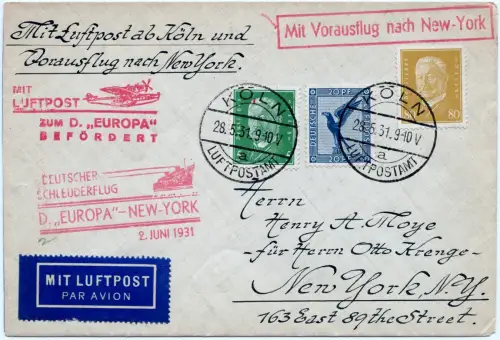 Mit Luftpost ab Köln und
Vorausflug nach New York.
Mit Vorausflug nach New-York
MIT
LUFTPOST
ZUM D. „EUROPA"
BEFÖRDERT
DEUTSCHER
SCHLEUDERFLUG
D. „EUROPA"–NEW-YORK
2. JUNI 1931
KÖLN
28.5.31.9-10 V
a
LUFTPOSTAMT
20 PF
20 PF
DEUTSCHE
KÖLN
28.5.31.9-10 V
a
LUFTPOSTAMT
80
MIT LUFTPOST
PAR AVION
Herrn
Henry A. Moye
–für Herrn Otto Krenge–
New York. N.Y.
163 East 89the Street.